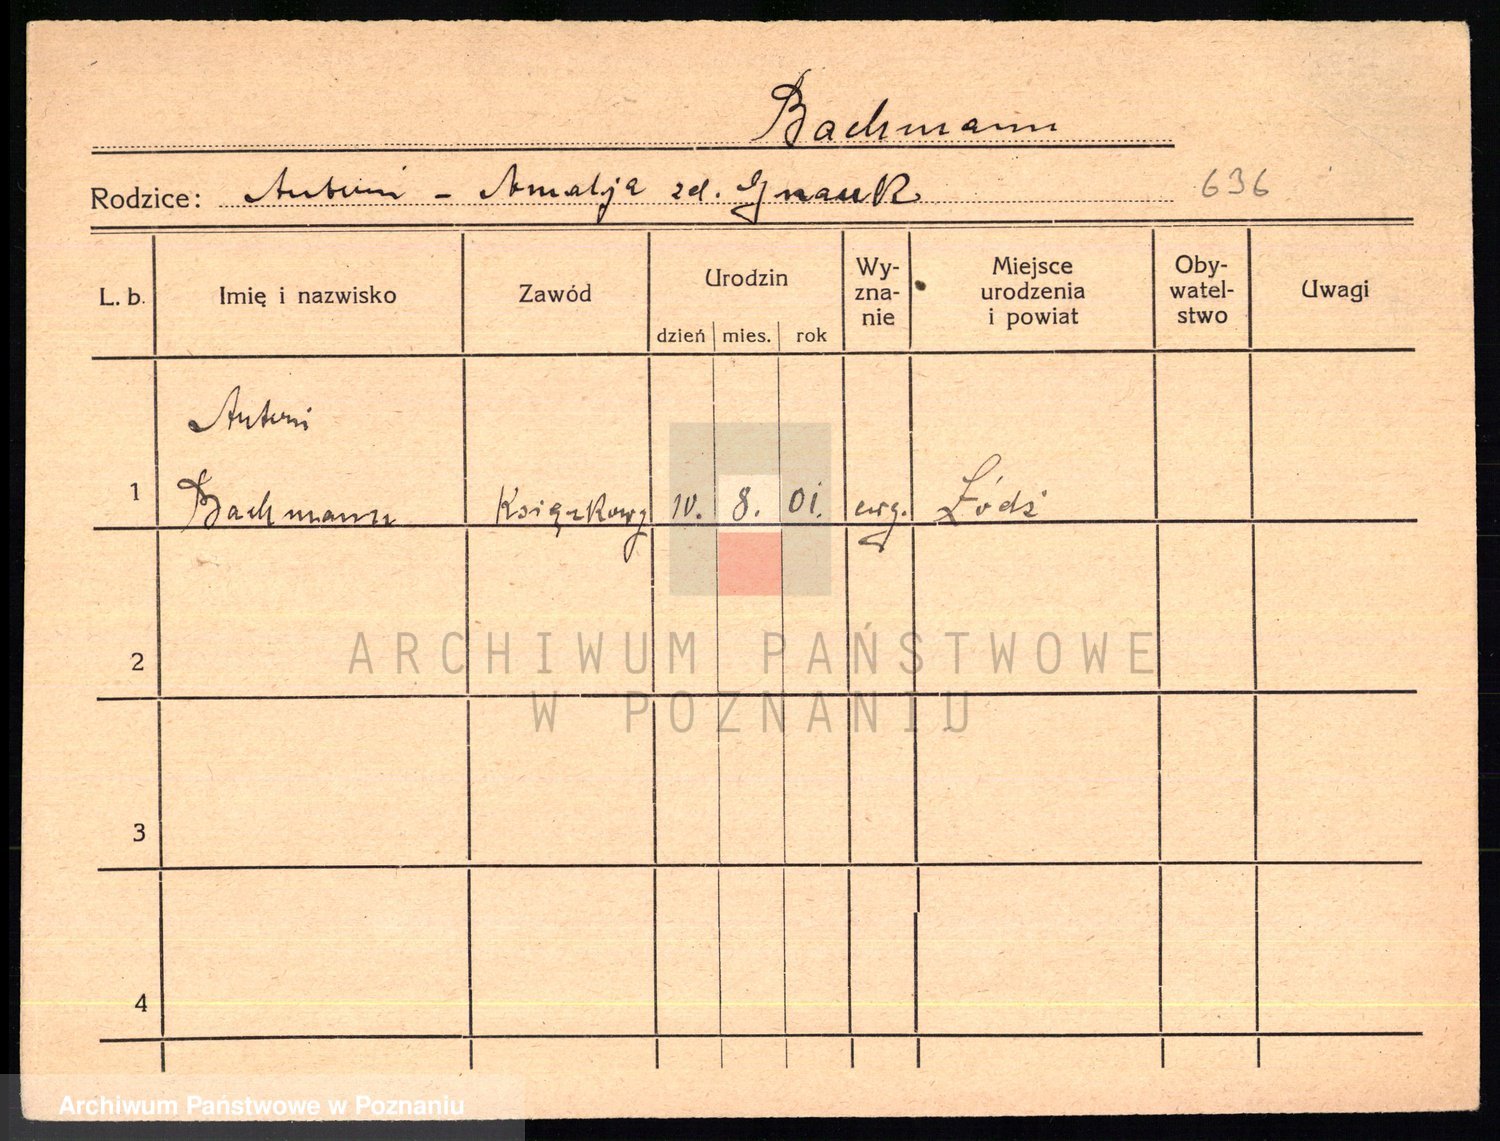 Bachmann
Rodzice: Antoni - Amalja zd. Gnauk
636
L. b.
Imię i nazwisko
Zawód
Urodzin
dzień mies. rok
Wy-
zna-
nie
Miejsce
urodzenia
i powiat
Oby-
watel-
stwo
Uwagi
Antoni
1 Bachmann Książkowy 10. 8. 01. ewg. Łódź
2
ARCHIWUM PAŃSTWOWE
W POZNANIU
3
4
Archiwum Państwowe w Poznaniu